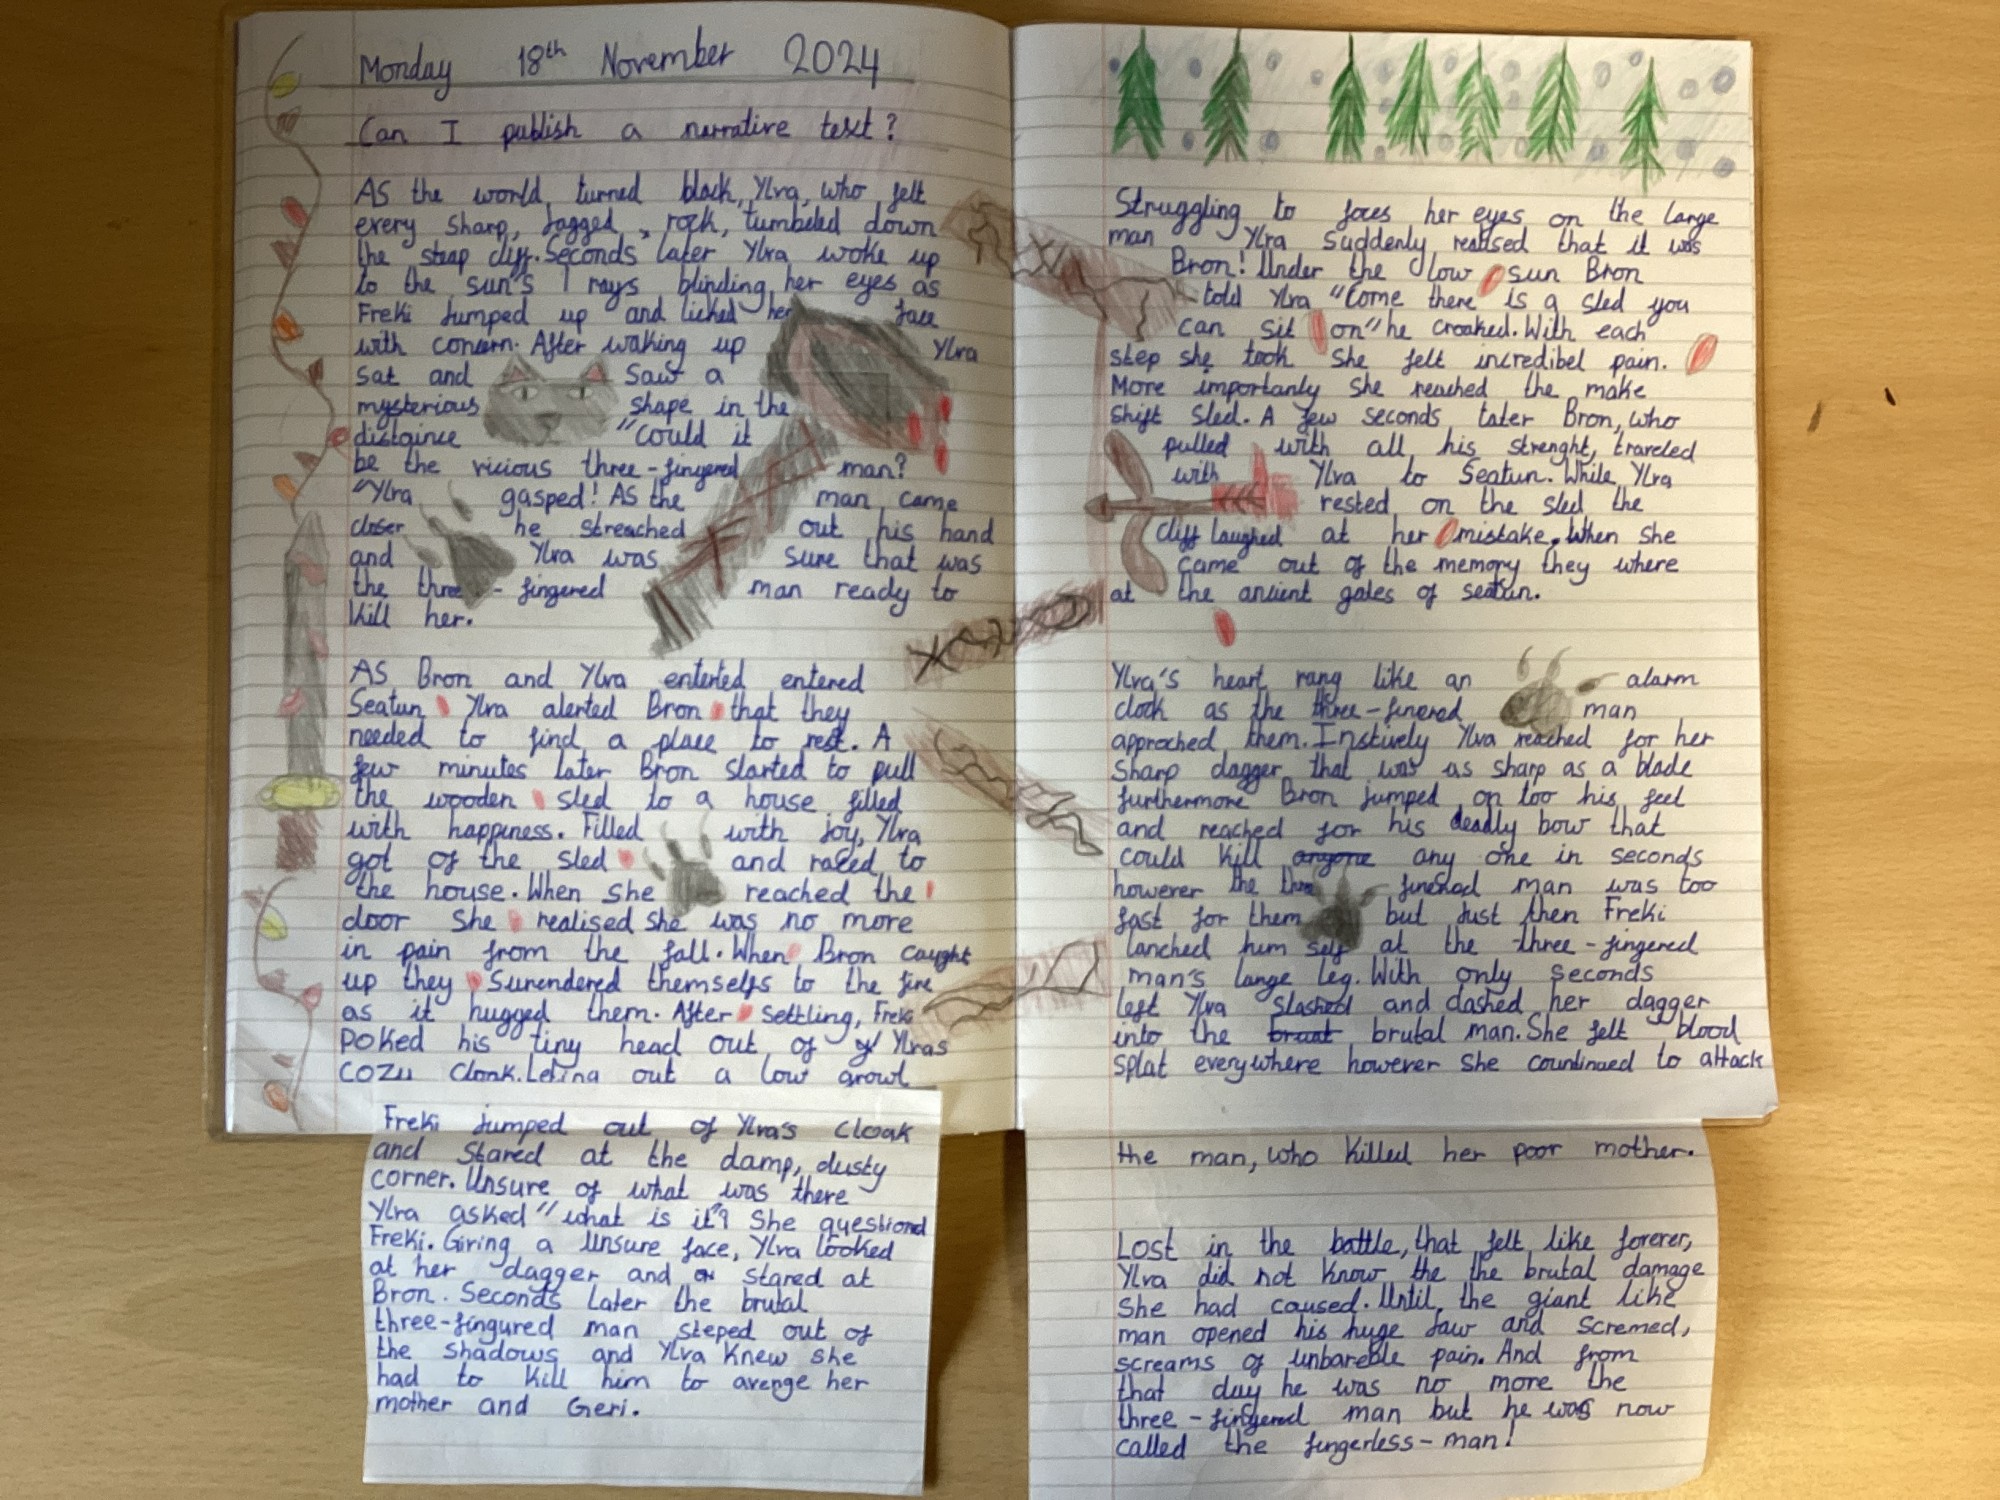 Monday 18th November 2024
Can I publish a narrative text?
As the world turned black, Ylva, who felt
every sharp, Jagged, rock, tumbeled down
the steap cliff. Seconds later Ylva woke up
to the sun's rays blinding her eyes as
Freki Jumped up and licked her face
with concern. After waking up Ylva
sat and saw a
mysterious shape in the
distgince "could it
be the vicious three-fingered man?
"Ylva gasped! As the man came
closer he streached out his hand
and Ylva was sure that was
the three-fingered man ready to
kill her.
Struggling to foces her eyes on the large
man Ylva suddenly realised that it was
Bron! Under the glow sun Bron
told Ylva "Come there is a sled you
can sit on" he croaked. With each
step she took she felt incredibel pain.
More importanly she reached the make
shift sled. A few seconds later Bron, who
pulled with all his strenght, traveled
with Ylva to Seatun. While Ylva
rested on the sled the
cliff laughed at her mistake. When she
came out of the memory they where
at the ancient gates of seatun.
As Bron and Ylva enterted entered
Seatun Ylva alerted Bron that they
needed to find a place to rest. A
few minutes later Bron started to pull
the wooden sled to a house filled
with happiness. Filled with joy, Ylva
got of the sled and raced to
the house. When she reached the
door she realised she was no more
in pain from the fall. When Bron caught
up they surendered themselfs to the fire
as it hugged them. After settling, Freki
poked his tiny head out of Ylvas
cozy cloak. Leting out a low growl
Freki Jumped out of Ylva's cloak
and stared at the damp, dusty
corner. Unsure of what was there
Ylva asked "what is it"? She questiond
Freki. Giving a unsure face, Ylva looked
at her dagger and stared at
Bron. Seconds later the brutal
three-fingured man steped out of
the shadows and Ylva knew she
had to kill him to avenge her
mother and Geri.
Ylva's heart rang like an alarm
clock as the three-finered man
approched them. Instively Ylva reached for her
sharp dagger that was as sharp as a blade
furthermore Bron jumped on too his feet
and reached for his deadly bow that
could kill anyone any one in seconds
however the three finered man was too
fast for them but Just then Freki
lanched him self at the three-fingered
man's large leg. With only seconds
left Ylva slashed and dashed her dagger
into the bruat brutal man. She felt blood
splat everywhere however she countinued to attack
the man, who killed her poor mother.
Lost in the battle, that felt like forever,
Ylva did not know the the brutal damage
she had caused. Until, the giant like
man opened his huge Jaw and scremed,
screams of unbareble pain. And from
that day he was no more the
three-fingered man but he was now
called the fingerless-man!